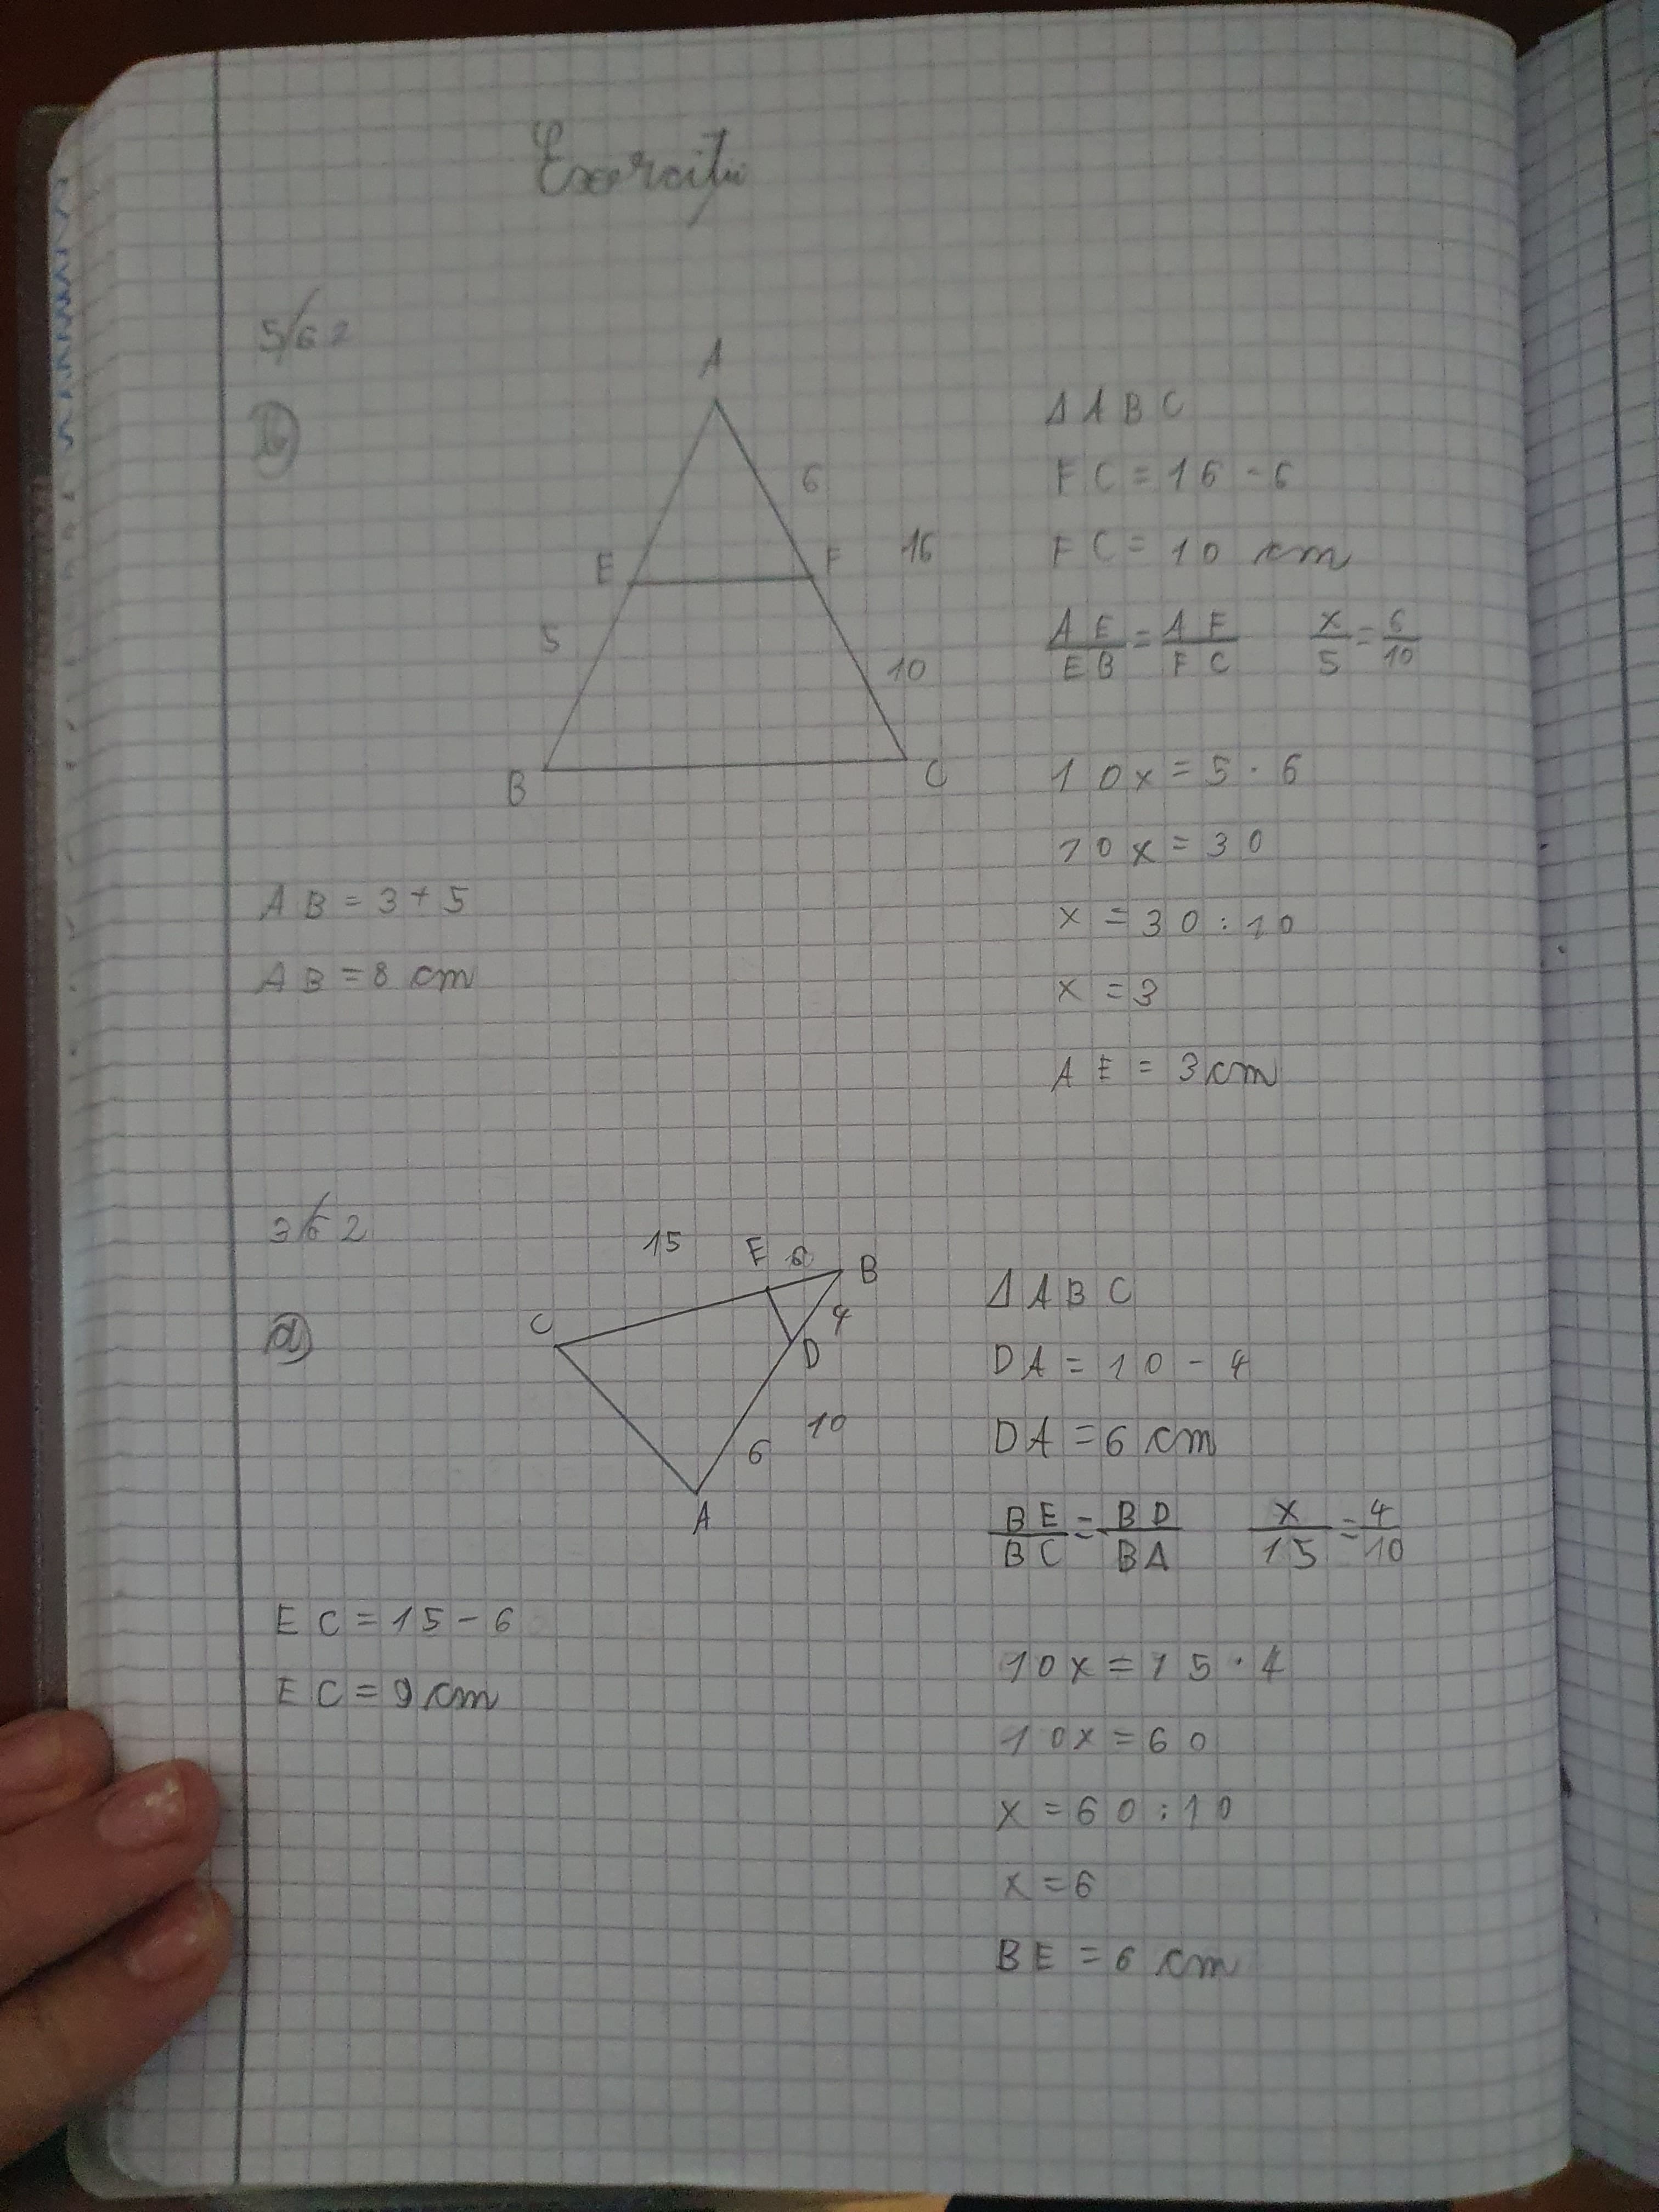 Exerciții
5/62
b)
A
6
E
F
16
5
10
B
C
Δ ABC
FC = 16 - 6
FC = 10 cm
AE/EB = AF/FC   x/5 = 6/10
10x = 5 · 6
10x = 30
x = 30 : 10
x = 3
AE = 3 cm
AB = 3 + 5
AB = 8 cm
3/62
15
E
B
C
4
D
10
6
A
Δ ABC
DA = 10 - 4
DA = 6 cm
BE/BC = BD/BA   x/15 = 4/10
10x = 15 · 4
10x = 60
x = 60 : 10
x = 6
BE = 6 cm
EC = 15 - 6
EC = 9 cm